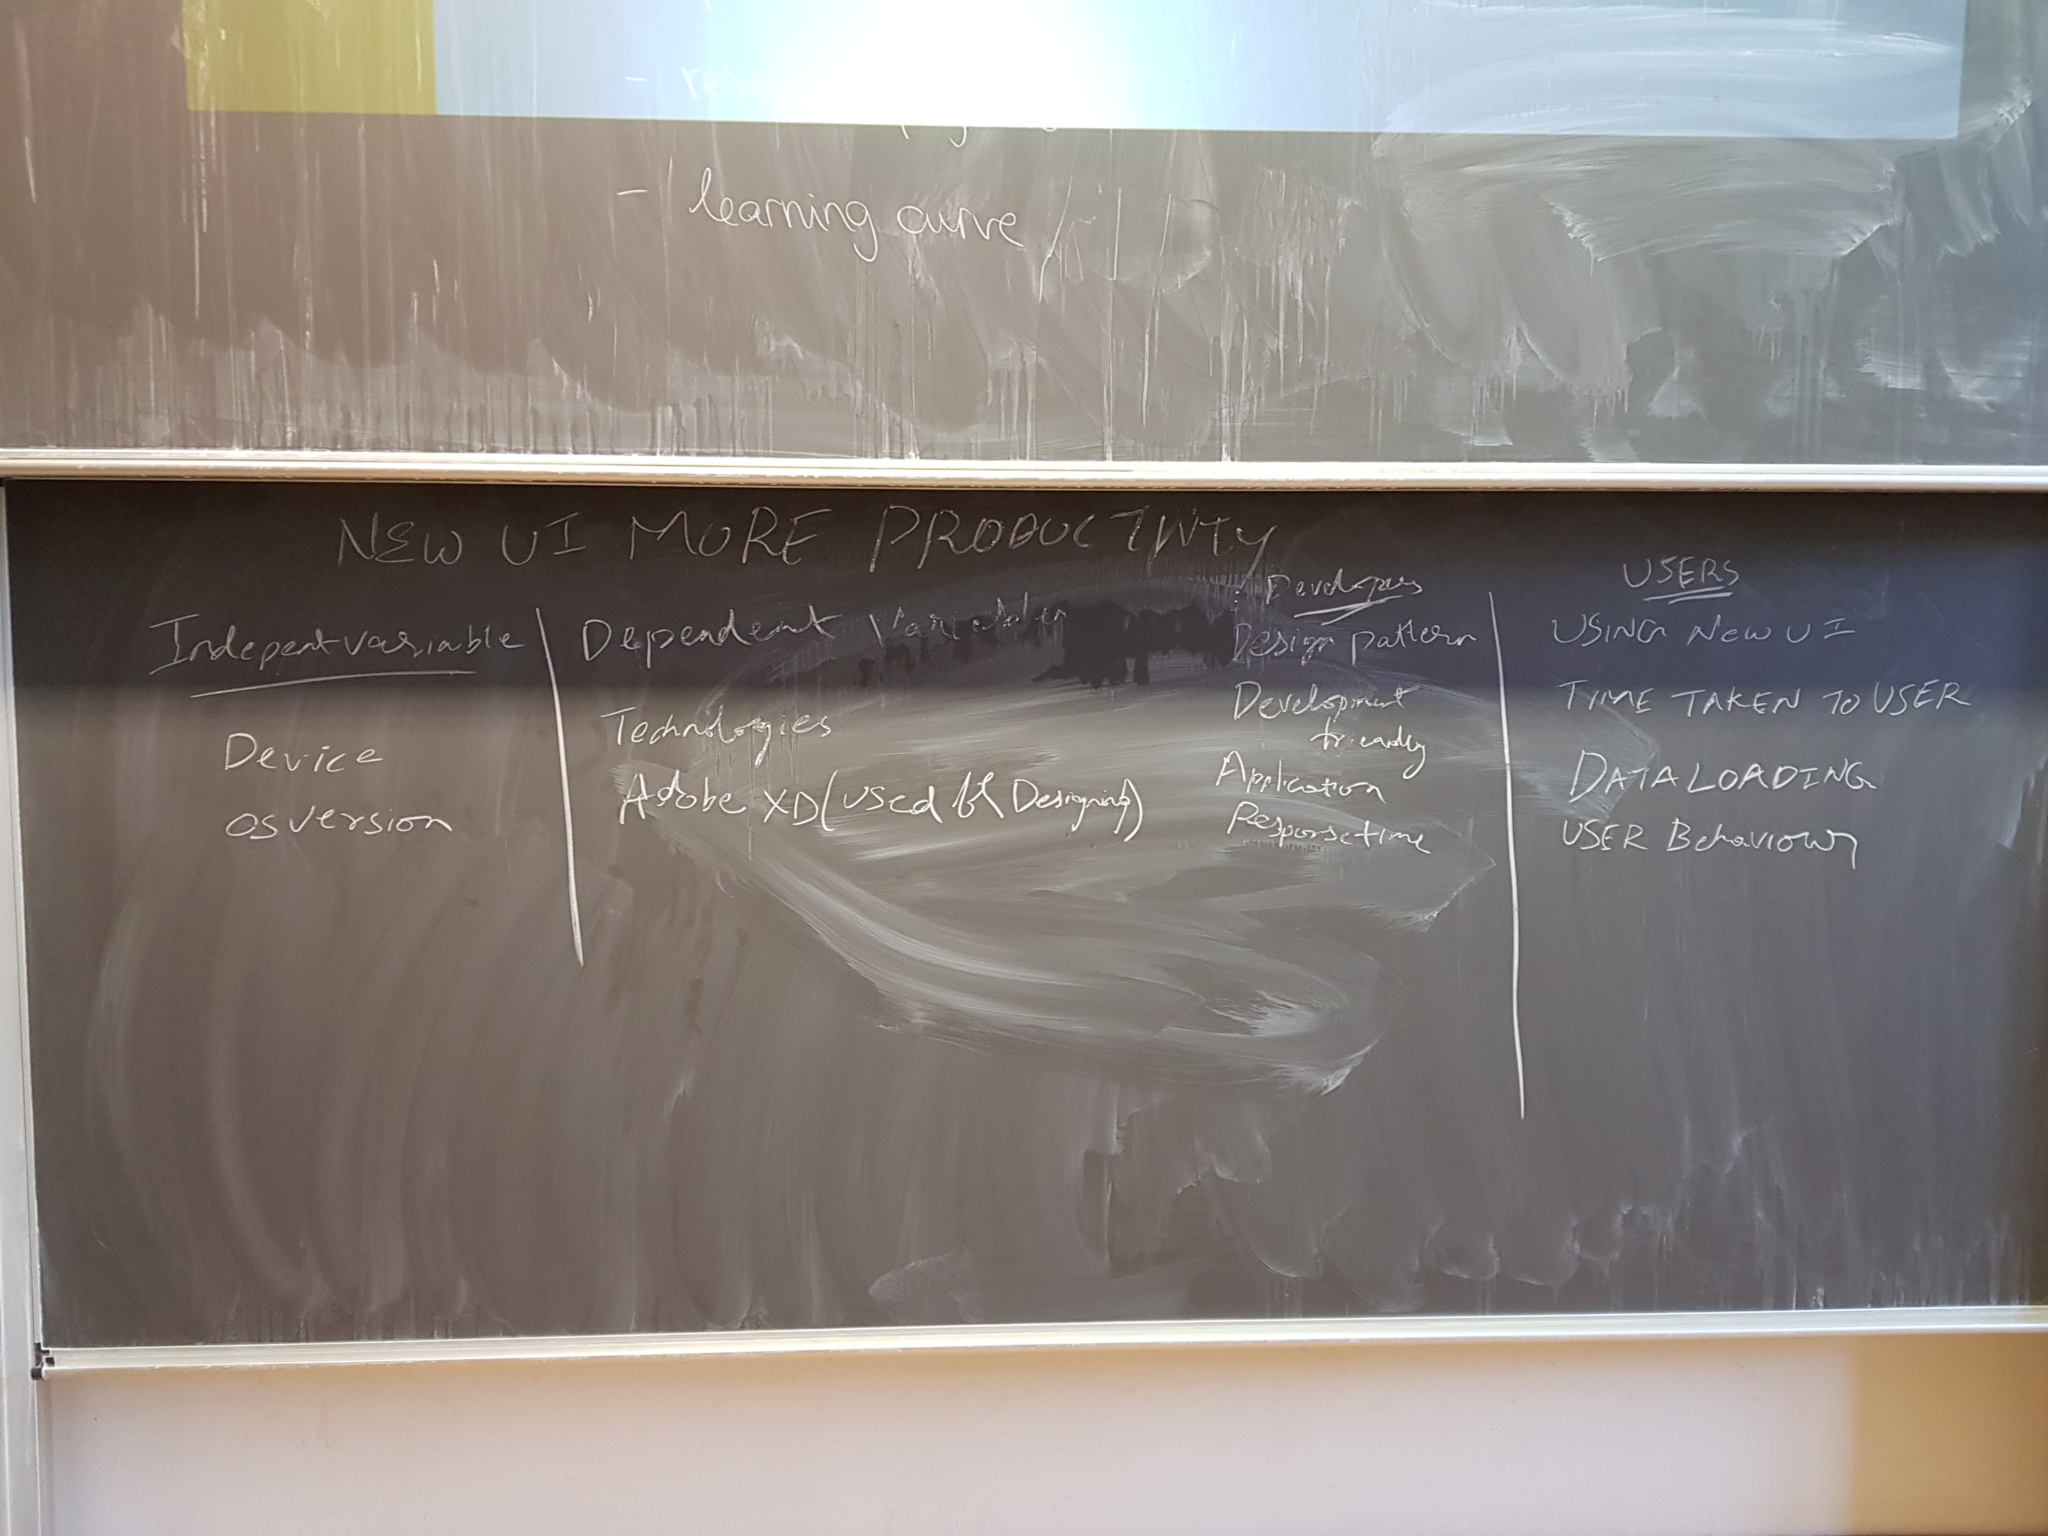 - learning curve
NEW UI MORE PRODUCTIVITY
Indepent variable
Device
OS version
Dependent Variables
Technologies
Adobe XD (used Designing)
Developers
Design pattern
Development
friendly
Application
Response time
USERS
USING NEW UI
TIME TAKEN TO USER
DATA LOADING
USER Behaviour